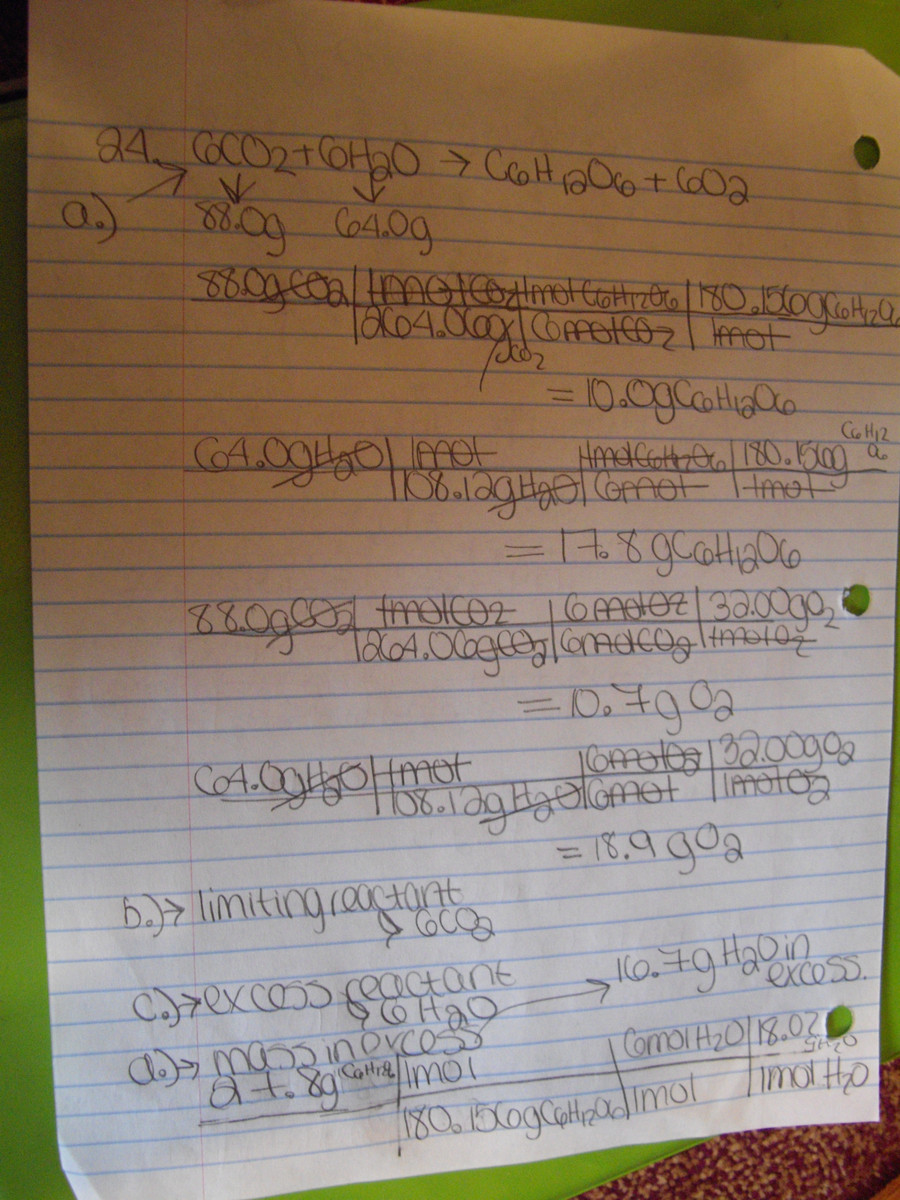 24. 6CO2 + 6H2O → C6H12O6 + 6O2
a.) 88.0g 64.0g
88.0gCO2 | 1molCO2 | 1molC6H12O6 | 180.156gC6H12O6
264.06g CO2 | 6molCO2 | 1mol
= 10.0gC6H12O6
64.0gH2O | 1mol | 1molC6H12O6 | 180.156g C6H12O6
108.12gH2O | 6mol | 1mol
= 17.8gC6H12O6
88.0gCO2 | 1molCO2 | 6molO2 | 32.00gO2
264.06gCO2 | 6molCO2 | 1molO2
= 10.7gO2
64.0gH2O | 1mol | 6molO2 | 32.00gO2
108.12gH2O | 6mol | 1molO2
= 18.9gO2
b.) → limiting reactant
↳ 6CO2
c.) → excess reactant
↳ 6H2O → 16.7gH2O in excess.
d.) → mass in excess
8g C6H12O6 | 1mol | 6molH2O | 18.02gH2O
180.156gC6H12O6 | 1mol | 1molH2O